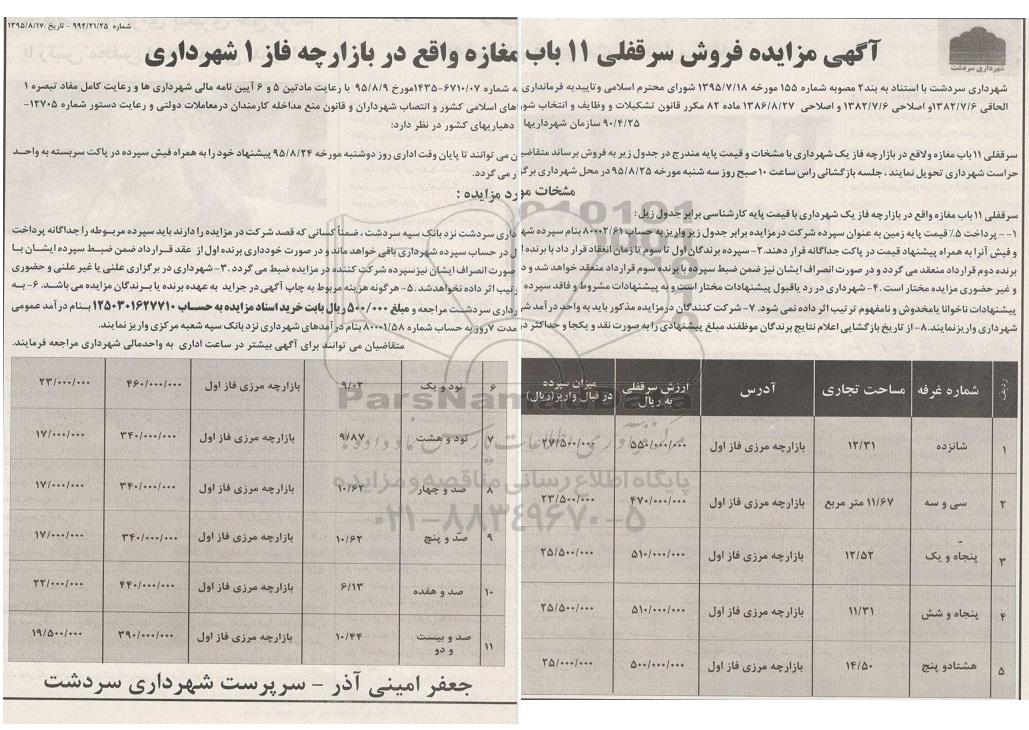 شماره ۹۹۴/۲۱/۲۵ - تاریخ: ۱۳۹۵/۸/۱۷
شهرداری سردشت
آگهی مزایده فروش سرقفلی ۱۱ باب مغازه واقع در بازارچه فاز ۱ شهرداری
شهرداری سردشت با استناد به بند۲ مصوبه شماره ۱۵۵ مورخه ۱۳۹۵/۷/۱۸ شورای محترم اسلامی وتاییدیه فرمانداری به شماره ۶۷۱۰/۰۷-۱۴۳۵مورخ ۹۵/۸/۹ با رعایت مادتین ۵ و ۶ آیین نامه مالی شهرداری ها و رعایت کامل مفاد تبصره ۱
الحاقی ۱۳۸۲/۷/۶و اصلاحی ۱۳۸۲/۷/۶ و اصلاحی ۱۳۸۶/۸/۲۷ ماده ۸۲ مکرر قانون تشکیلات و وظایف و انتخاب شوراهای اسلامی کشور و انتصاب شهرداران و قانون منع مداخله کارمندان درمعاملات دولتی و رعایت دستور شماره ۱۲۷۰۵-
۹۰/۴/۲۵ سازمان شهرداریها دهیاریهای کشور در نظر دارد:
سرقفلی ۱۱ باب مغازه ولاقع در بازارچه فاز یک شهرداری با مشخات و قیمت پایه مندرج در جدول زیر به فروش برساند متقاضین می توانند تا پایان وقت اداری روز دوشنبه مورخه ۹۵/۸/۲۴ پیشنهاد خود را به همراه فیش سپرده در پاکت سربسته به واحد
حراست شهرداری تحویل نمایند ، جلسه بازگشائی راس ساعت ۱۰ صبح روز سه شنبه مورخه ۹۵/۸/۲۵ در محل شهرداری برگزار می گردد.
مشخات مورد مزایده :
سرقفلی ۱۱ باب مغازه واقع در بازارچه فاز یک شهرداری با قیمت پایه کارشناسی برابر جدول زیل :
۱-- پرداخت ۵٪ قیمت پایه زمین به عنوان سپرده شرکت در مزایده برابر جدول زیر واریز به حساب ۸۰۰۰۲/۶۱ بنام سپرده شهرداری سردشت نزد بانک سپه سردشت ، ضمناً کسانی که قصد شرکت در مزایده را دارند باید سپرده مربوطه را جداگانه پرداخت
و فیش آنرا به همراه پیشنهاد قیمت در پاکت جداگانه قرار دهند.۲- سپرده برندگان اول تا سوم تا زمان انعقاد قرار داد با برنده اول در حساب سپرده شهرداری باقی خواهد ماند و در صورت خودداری برنده اول از عقد قرارداد ضمن ضبط سپرده ایشان با
برنده دوم قرارداد منعقد می گردد و در صورت انصراف ایشان نیز ضمن ضبط سپرده با برنده سوم قرارداد منعقد خواهد شد و در صورت انصراف ایشان نیز سپرده شرکت کننده در مزایده ضبط می گردد. ۳-شهرداری در برگزاری علنی یا غیر علنی و حضوری
و غیر حضوری مزایده مختار است .۴-شهرداری در رد یاقبول پیشنهادات مختار است و به پیشنهادات مشروط و فاقد سپرده ترتیب اثر داده نخواهدشد. ۵-هرگونه هزینه مربوط به چاپ آگهی در جراید به عهده برنده یا برندگان مزایده می باشد. ۶- به
پیشنهادات ناخوانا یامخدوش و نامفهوم ترتیب اثر داده نمی شود. ۷-شرکت کنندگان درمزایده مذکور باید به واحد درآمد شهرداری سردشت مراجعه و مبلغ ۵۰۰/۰۰۰ ریال بابت خرید اسناد مزایده به حساب ۱۲۵۰۳۰۱۶۲۷۷۱۰ بنام درآمد عمومی
شهرداری واریزنمایند.۸- از تاریخ بازگشایی اعلام نتایج برندگان موظفند مبلغ پیشنهادی را به صورت نقد و یکجا و حداکثر در مدت ۷روز به حساب شماره ۸۰۰۰۱/۵۸ بنام درآمدهای شهرداری نزد بانک سپه شعبه مرکزی واریز نمایند.
متقاضیان می توانند برای آگهی بیشتر در ساعت اداری به واحدمالی شهرداری مراجعه فرمایند.
ردیف شماره غرفه مساحت تجاری آدرس ارزش سرقفلی به ریال میزان سپرده در قبال واریز(ریال)
۱ شانزده ۱۲/۳۱ بازارچه مرزی فاز اول ۵۵۰/۰۰۰/۰۰۰ ۲۷/۵۰۰/۰۰۰
۲ سی و سه ۱۱/۶۷ متر مربع بازارچه مرزی فاز اول ۴۷۰/۰۰۰/۰۰۰ ۲۳/۵۰۰/۰۰۰
۳ پنجاه و یک ۱۲/۵۲ بازارچه مرزی فاز اول ۵۱۰/۰۰۰/۰۰۰ ۲۵/۵۰۰/۰۰۰
۴ پنجاه و شش ۱۱/۳۱ بازارچه مرزی فاز اول ۵۱۰/۰۰۰/۰۰۰ ۲۵/۵۰۰/۰۰۰
۵ هشتادو پنج ۱۴/۵۰ بازارچه مرزی فاز اول ۵۰۰/۰۰۰/۰۰۰ ۲۵/۰۰۰/۰۰۰
۶ نود و یک ۹/۰۲ بازارچه مرزی فاز اول ۴۶۰/۰۰۰/۰۰۰ ۲۳/۰۰۰/۰۰۰
۷ نود و هشت ۹/۸۷ بازارچه مرزی فاز اول ۳۴۰/۰۰۰/۰۰۰ ۱۷/۰۰۰/۰۰۰
۸ صد و چهار ۱۰/۶۲ بازارچه مرزی فاز اول ۳۴۰/۰۰۰/۰۰۰ ۱۷/۰۰۰/۰۰۰
۹ صد و پنج ۱۰/۶۲ بازارچه مرزی فاز اول ۳۴۰/۰۰۰/۰۰۰ ۱۷/۰۰۰/۰۰۰
۱۰ صد و هفده ۶/۱۳ بازارچه مرزی فاز اول ۴۴۰/۰۰۰/۰۰۰ ۲۲/۰۰۰/۰۰۰
۱۱ صد و بیست و دو ۱۰/۴۴ بازارچه مرزی فاز اول ۳۹۰/۰۰۰/۰۰۰ ۱۹/۵۰۰/۰۰۰
جعفر امینی آذر - سرپرست شهرداری سردشت
ParsNamadData
پایگاه اطلاع رسانی مناقصه و مزایده
۰۲۱-۸۸۳۴۹۶۷۰-۵